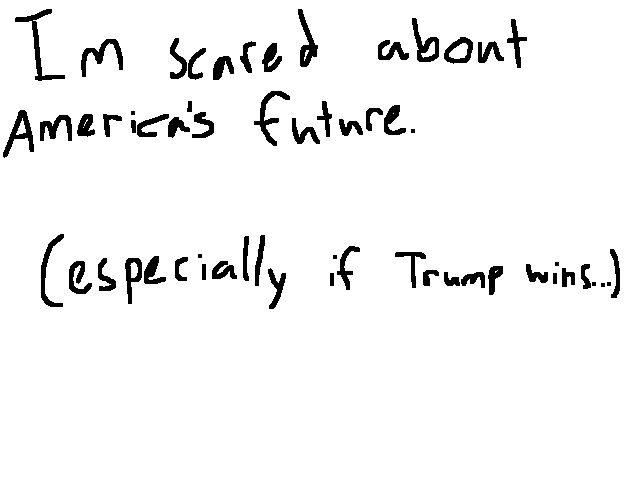 Im scared about
America's future.
(especially if Trump wins...)